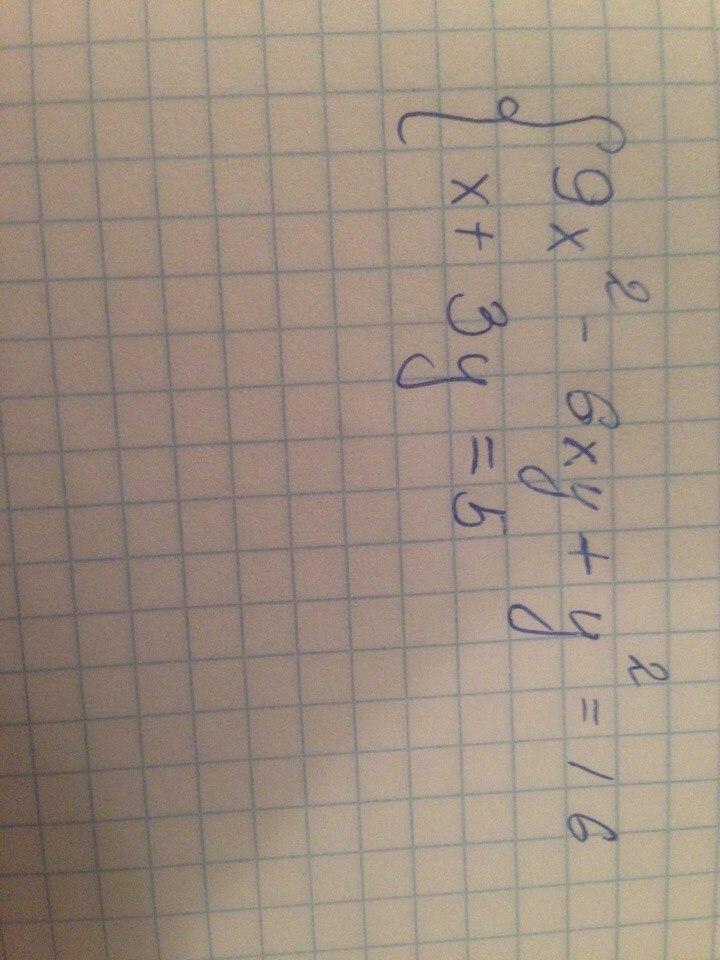 9x² - 6xy + y² = 16
x + 3y = 5